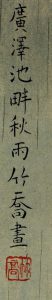 廣澤池畔秋雨竹喬畫